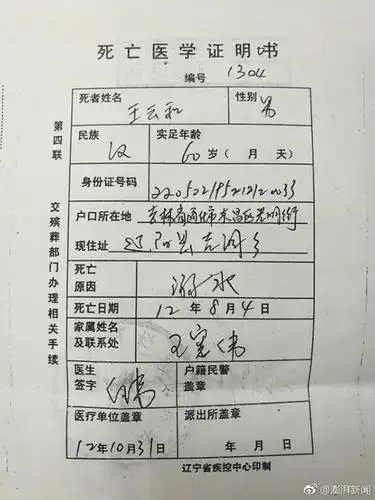 死亡医学证明书
编号 1304
第四联 交殡葬部门办理相关手续
死者姓名 王云和 性别 男
民族 汉 实足年龄 60岁（ 月 天）
身份证号码 220502195212120033
户口所在地 吉林省通化市东昌区光明街
现住址 辽阳县吉洞乡
死亡原因 溺水
死亡日期 12年8月4日
家属姓名及联系处 王宪伟
医生签字 户籍民警盖章
医疗单位盖章 派出所盖章
12年10月31日 年 月 日
辽宁省疾控中心印制
@澎湃新闻